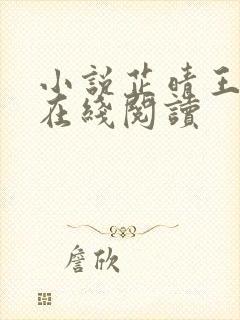 小說芷晴王
在綫閱讀
詹欣